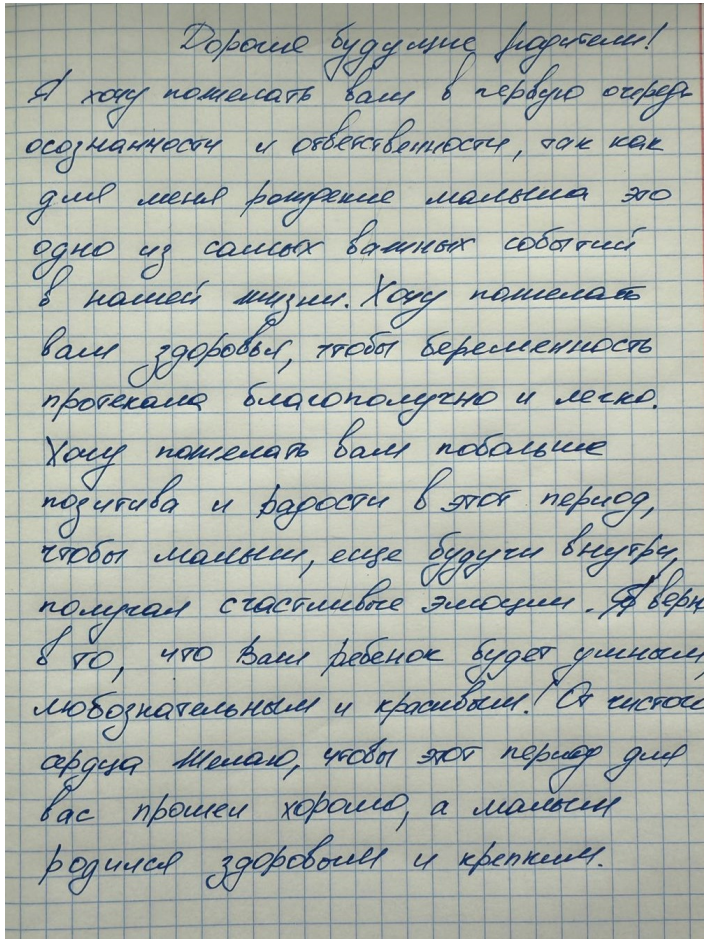 Дорогие будущие родители!
Я хочу пожелать вам в первую очередь
осознанности и ответственности, так как
для меня рождение малыша это
одно из самых важных событий
в нашей жизни. Хочу пожелать
вам здоровья, чтобы беременность
протекала благополучно и легко.
Хочу пожелать вам побольше
позитива и радости в этот период,
чтобы малыш, еще будучи внутри,
получал счастливые эмоции. Я верю
в то, что Ваш ребенок будет умным,
любознательным и красивым! От чистого
сердца Желаю, чтобы этот период для
вас прошел хорошо, а малыш
родился здоровым и крепким.